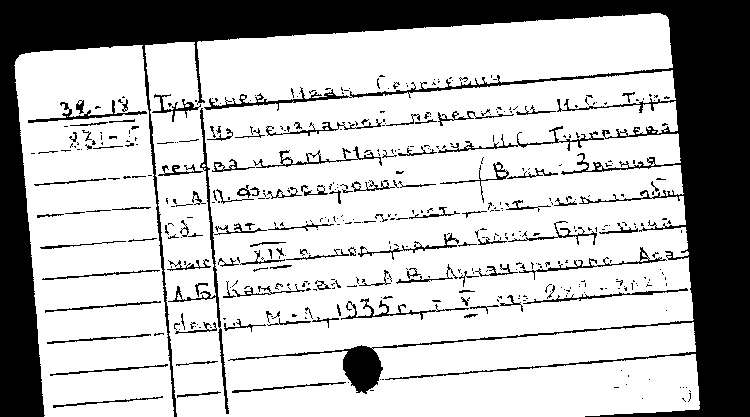 32-18
231-5
Тургенев, Иван Сергеевич
Из неизданной переписки И.С. Тур-
генева и Б.М. Маркевича. И.С. Тургенева
и А.П. Философовой (В кн.: Звенья
Сб. мат. и док. по ист., лит., иск. и общ.
мысли XIX в. под ред. В. Бонч-Бруевича,
Л.Б. Каменева и А.В. Луначарского. Aca-
demia, М.-Л., 1935 г., т. V, стр.